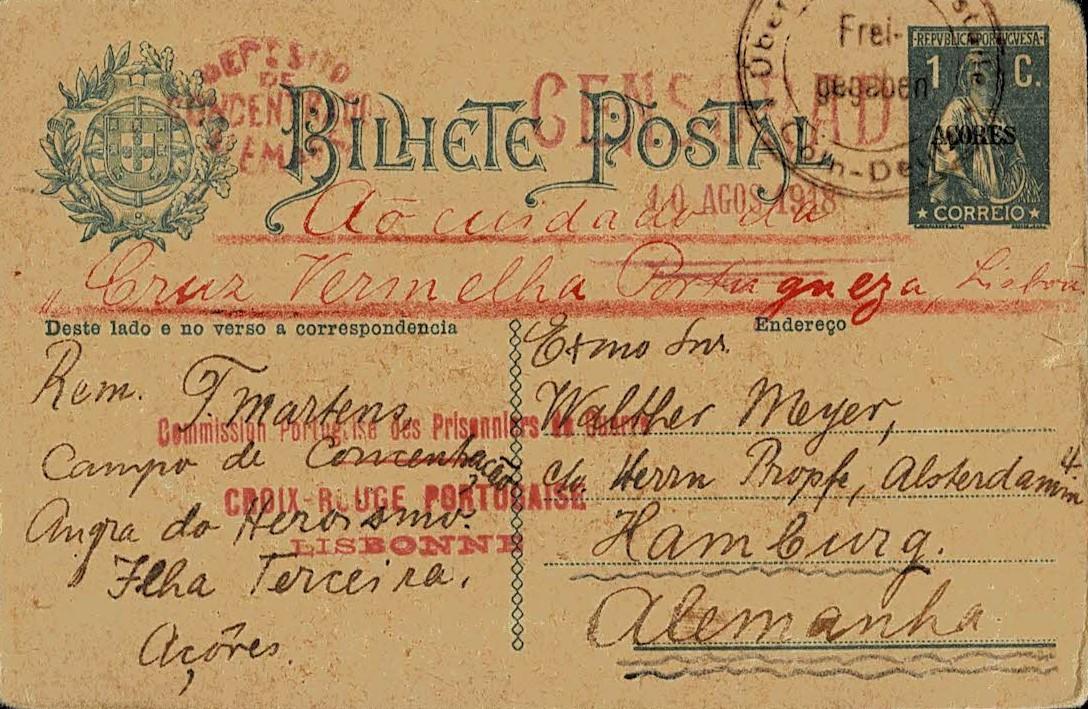 DEPOSITO
DE
CONCENTRADOS
BILHETE POSTAL
CENSURADO
10 AGOS 1918
Frei-
gegeben
REPVBLICA PORTVGVESA
1 C.
AÇORES
CORREIO
Aõ cuidado da
Cruz Vermelha Portugueza, Lisbôa
Deste lado e no verso a correspondencia
Endereço
Rem. T Martens
Campo de Concentração
Angra do Heroismo.
Ilha Terceira,
Açôres.
Commission Portugaise des Prisonniers de Guerre
CROIX-ROUGE PORTUGAISE
LISBONNE
Exmo Snr.
Walther Meyer,
c/o Herrn Propfe, Alsterdamm 4
Hamburg.
Alemanha